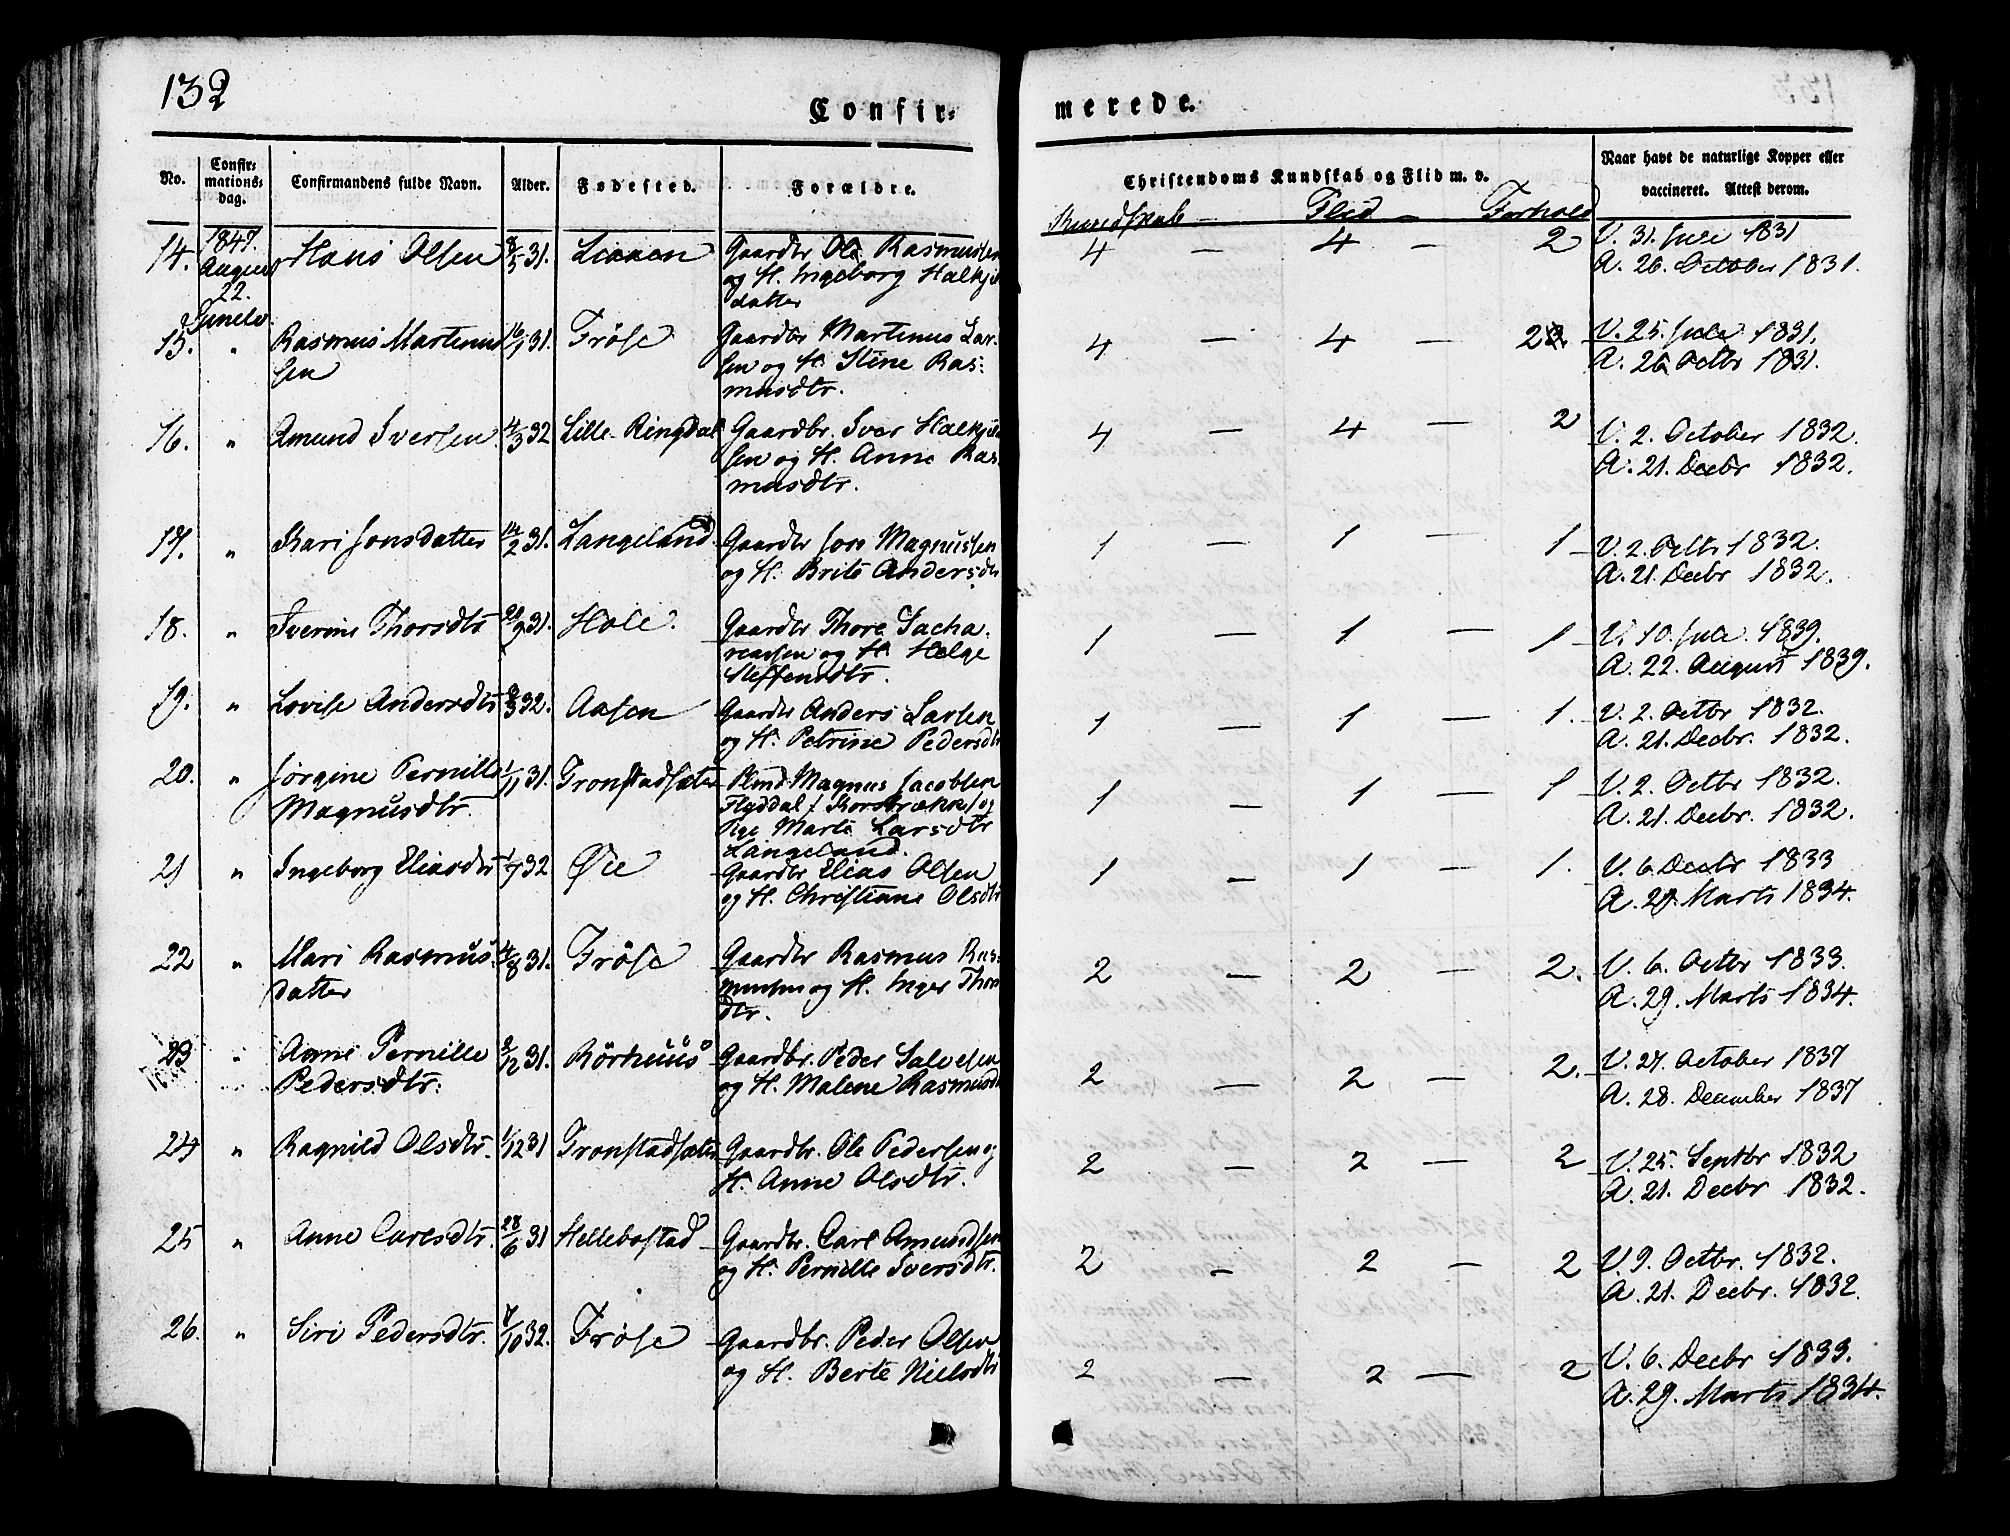 132
Confir-
merede.
No.
Confir-
mations-
dag.
Confirmandens fulde Navn.
Alder.
Fødested.
Forældre.
Christendoms Kundskab og Flid m. v.
Naar havt de naturlige Kopper eller
vaccineret. Attest derom.
Kundskab — Flid — Forhold
1847.
14. August Hans Olsen 8/5 31. Gaardbr Ole Rasmussen 4 — 4 — 2 V. 31. Juli 1831
22. og H. Ingeborg A. 26. October 1831.
datter
Sunelv.
15. " Rasmus Martinus 16/1 31. Frøse Gaardbr Martinus Lar- 4 — 4 — 2 V. 25. Juli 1831.
sen sen og H. Stine Ras- A. 26 Octbr 1831.
musdtr.
16. " Amund Iversen 4/3 32 Lille-Ringdal Gaardbr. Iver 4 — 4 — 2 V. 2. October 1832.
sen og H. Anne Ras- A. 21. Decbr 1832.
musdtr.
17. " Kari Jonsdatter 14/2 31. Langeland Gaardbr Jon Magnussen 1 — 1 — 1 V. 2. Octbr 1832.
og H. Brite Andersdtr A. 21. Decbr 1832.
18. " Iverine Thorsdtr 31. Hole. Gaardbr Thore Sacha- 1 — 1 — 1 V. 10. Juli 1839.
riassen og H. Helge A. 22. August 1839.
Steffensdtr.
19. " Lovise Andersdtr 32. Aasen Gaardbr Anders Larsen 1 — 1 — 1. V. 2. Octbr 1832.
og H. Petrine Pedersdtr A. 21. Decbr. 1832.
20. " Jørgine Pernille 1/11 31. Tronstadsæter Magnus Jacobsen 1 — 1 — 1 V. 2. Octbr 1832.
Magnusdtr. Flyddal f. Korsbrække) og A. 21. Decbr. 1832.
Pige Marte Larsdtr
Langeland.
21 " Ingeborg Eliasdtr 1/7 32 Øie Gaardbr Elias Olsen 1 — 1 — 1. V. 6 Decbr 1833
og H. Christiane Olsdtr A. 29. Marts 1834.
22 " Mari Rasmus- 4/8 31. Frøse Gaardbr Rasmus Ras- 2 — 2 — 2. V. 6. Octbr 1833.
datter mussen og H. Inger Thors A. 29. Marts 1834.
dtr.
23 " Anne Pernille 2/12 31. Rørhuus Gaardbr. Peder Salvesen 2 — 2 — 2. V. 27. October 1837
Pedersdtr. og H. Malene Rasmusdtr A. 28. December 1837
24 " Ragnild Olsdtr. 1/12 31 Tronstadsæter Gaardbr. Ole Pedersen og 2 — 2 — 2 V. 25. Septbr 1832
H. Anne Olsdtr. A. 21. Decbr 1832.
25 " Anne Carlsdtr. 28/6 31 Hellebostad Gaardbr. Carl Amundsen 2 — 2 — 2 V. 9. Octbr. 1832.
og H. Pernille Iversdtr. A. 21. Decbr. 1832.
26. " Siri Pedersdtr. 7/10 32. Frøse Gaardbr. Peder Olsen 2 — 2 — 2 V. 6. Decbr 1833.
og H. Berte Nielsdtr A. 29. Marts 1834.